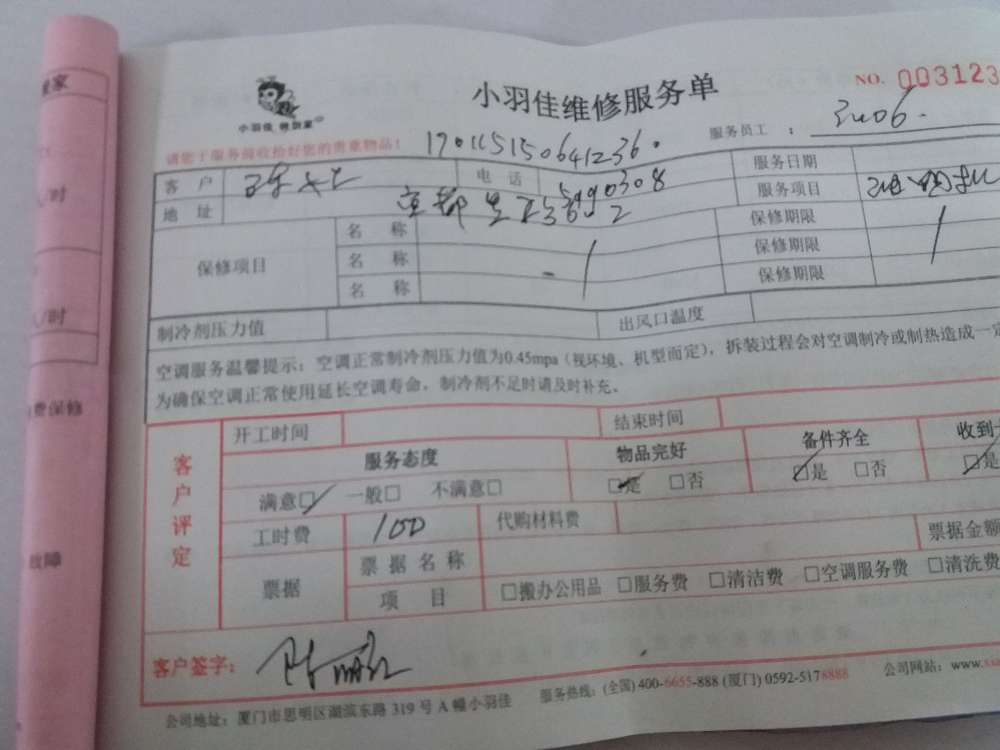 小羽佳维修服务单
NO. 003123
小羽佳 帮到家
服务员工 ： 3406.
请您于服务前收拾好您的贵重物品！ 170115150641236.
客 户 电 话 5990308 服务日期
地 址 服务项目
保修项目 名 称 保修期限
名 称 保修期限
名 称 保修期限
制冷剂压力值 出风口温度
空调服务温馨提示：空调正常制冷剂压力值为0.45mpa（视环境、机型而定），拆装过程会对空调制冷或制热造成一定
为确保空调正常使用延长空调寿命，制冷剂不足时请及时补充。
客户评定 开工时间 结束时间
服务态度 物品完好 备件齐全 收到
满意□ 一般□ 不满意□ □是 □否 □是 □否 □是
工时费 100 代购材料费
票据 票据名称 票据金额
项 目 □搬办公用品 □服务费 □清洁费 □空调服务费 □清洗费
客户签字：
公司地址：厦门市思明区湖滨东路 319 号 A 幢小羽佳 服务热线：(全国) 400-6655-888 (厦门) 0592-5178888 公司网站：www.
家
/时
/时
费保修
故障